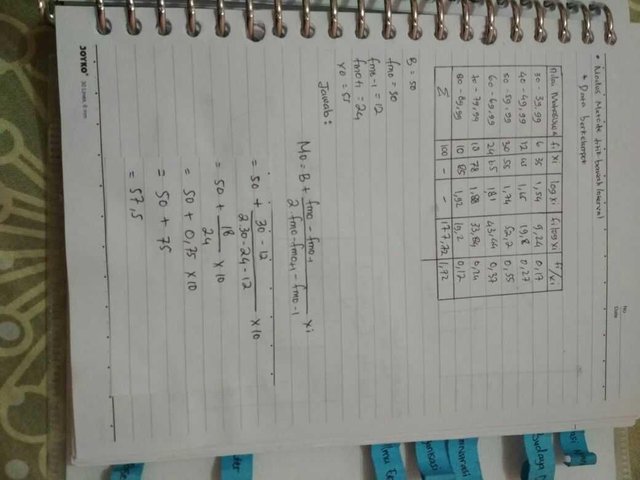 No
Date
• Modus Metode titik bawah Interval
* Data berkelompok
Nilai Mahasiswa fi xi log xi fi log xi fi/xi
30 - 39,99 6 35 1,54 9,24 0,17
40 - 49,99 12 45 1,65 19,8 0,27
50 - 59,99 30 55 1,74 52,2 0,55
60 - 69,99 24 65 1,81 43,44 0,37
70 - 79,99 18 78 1,88 33,84 0,24
80 - 89,99 10 85 1,92 19,2 0,12
Σ 100 - - 177,72 1,72
B = 50
fmo = 30
fmo-1 = 12
fmo+1 = 24
xo = 55
Jawab :
Mo = B + fmo - fmo-1 / 2.fmo - fmo+1 - fmo-1 xi
= 50 + 30 - 12 / 2.30 - 24 - 12 x 10
= 50 + 18 / 24 x 10
= 50 + 0,75 x 10
= 50 + 75
= 57,5
JOYKO
Budaya